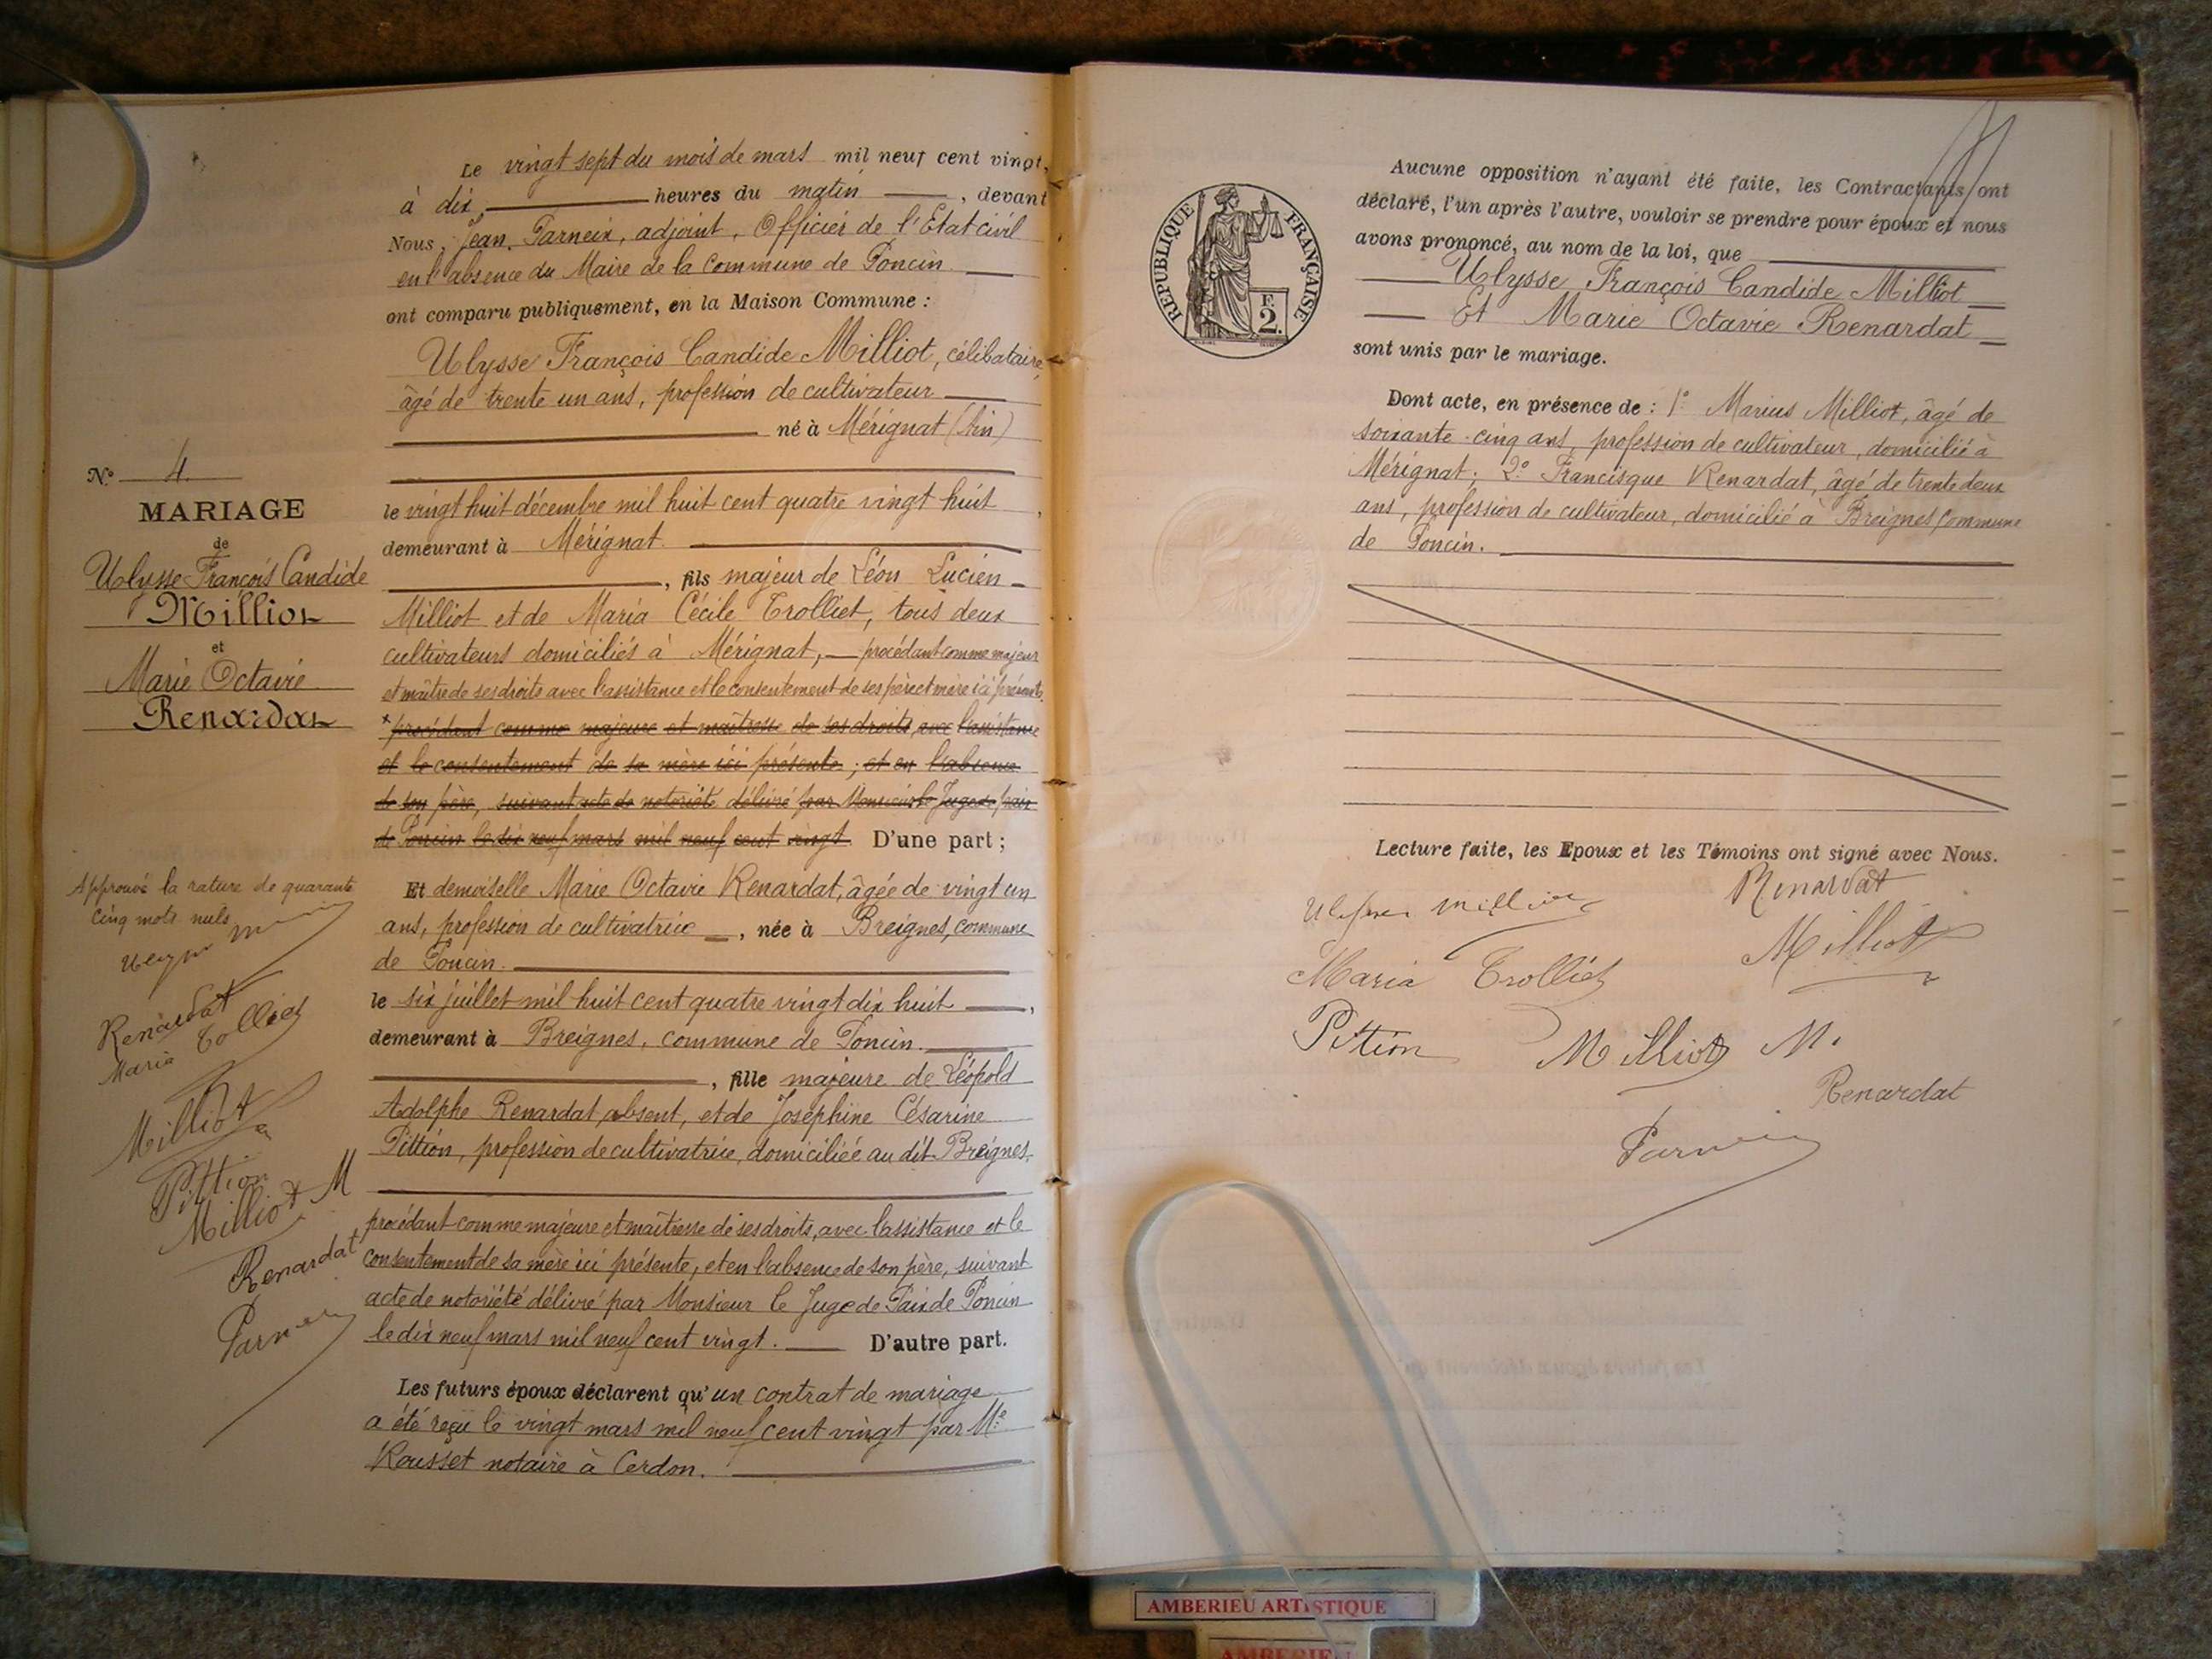 Le vingt sept du mois de mars mil neuf cent vingt,
à dix heures du matin, devant
Nous, Jean Parneix, adjoint, Officier de l'Etat civil
en l'absence du Maire de la Commune de Poncin
ont comparu publiquement, en la Maison Commune :
Ulysse François Candide Milliot, célibataire,
âgé de trente un ans, profession de cultivateur
né à Mérignat (Ain)
le vingt huit décembre mil huit cent quatre vingt huit,
demeurant à Mérignat.
, fils majeur de Léon Lucien
Milliot et de Maria Cécile Trolliet, tous deux
cultivateurs domiciliés à Mérignat, procédant comme majeur
et maître de ses droits avec l'assistance et le consentement de ses père et mère ici présents.
procédant comme majeure et maîtresse de ses droits, avec l'assistance
et le consentement de sa mère ici présente ; et en l'absence
de son père, suivant acte de notoriété délivré par Monsieur le Juge de paix
de Poncin le dix neuf mars mil neuf cent vingt. D'une part ;
Et demoiselle Marie Octavie Renardat, âgée de vingt un
ans, profession de cultivatrice, née à Breignes, commune
de Poncin.
le six juillet mil huit cent quatre vingt dix huit,
demeurant à Breignes, commune de Poncin.
, fille majeure de Léopold
Adolphe Renardat, absent, et de Joséphine Césarine
Pittion, profession de cultivatrice, domiciliée au dit Breignes,
procédant comme majeure et maîtresse de ses droits, avec l'assistance et le
consentement de sa mère ici présente, et en l'absence de son père, suivant
acte de notoriété délivré par Monsieur le Juge de Paix de Poncin
le dix neuf mars mil neuf cent vingt. D'autre part.
Les futurs époux déclarent qu'un contrat de mariage
a été reçu le vingt mars mil neuf cent vingt par Me
Rousset notaire à Cerdon.
N° 4.
MARIAGE
de
Ulysse François Candide
Milliot
et
Marie Octavie
Renardat
Approuvé la rature de quarante
cinq mots nuls
Renardat
Maria Tolliet
Milliot
Pittion
Milliot M
Renardat
Parneix
REPUBLIQUE FRANÇAISE
F.
2.
Aucune opposition n'ayant été faite, les Contractants ont
déclaré, l'un après l'autre, vouloir se prendre pour époux et nous
avons prononcé, au nom de la loi, que
Ulysse François Candide Milliot
Et Marie Octavie Renardat
sont unis par le mariage.
Dont acte, en présence de : 1° Marius Milliot, âgé de
soixante-cinq ans, profession de cultivateur, domicilié à
Mérignat ; 2° Francisque Renardat, âgé de trente deux
ans, profession de cultivateur, domicilié à Breignes, commune
de Poncin.
Lecture faite, les Epoux et les Témoins ont signé avec Nous.
Ulysse Milliot
Renardat
Maria Trolliet
Milliot
Pittion
Milliot M.
Renardat
Parneix
AMBERIEU ARTISTIQUE